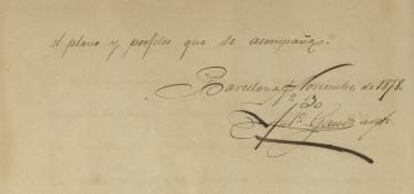 el plano y perfiles que se acompaña.
Barcelona Noviembre de 1878.
Gaudí arqt.